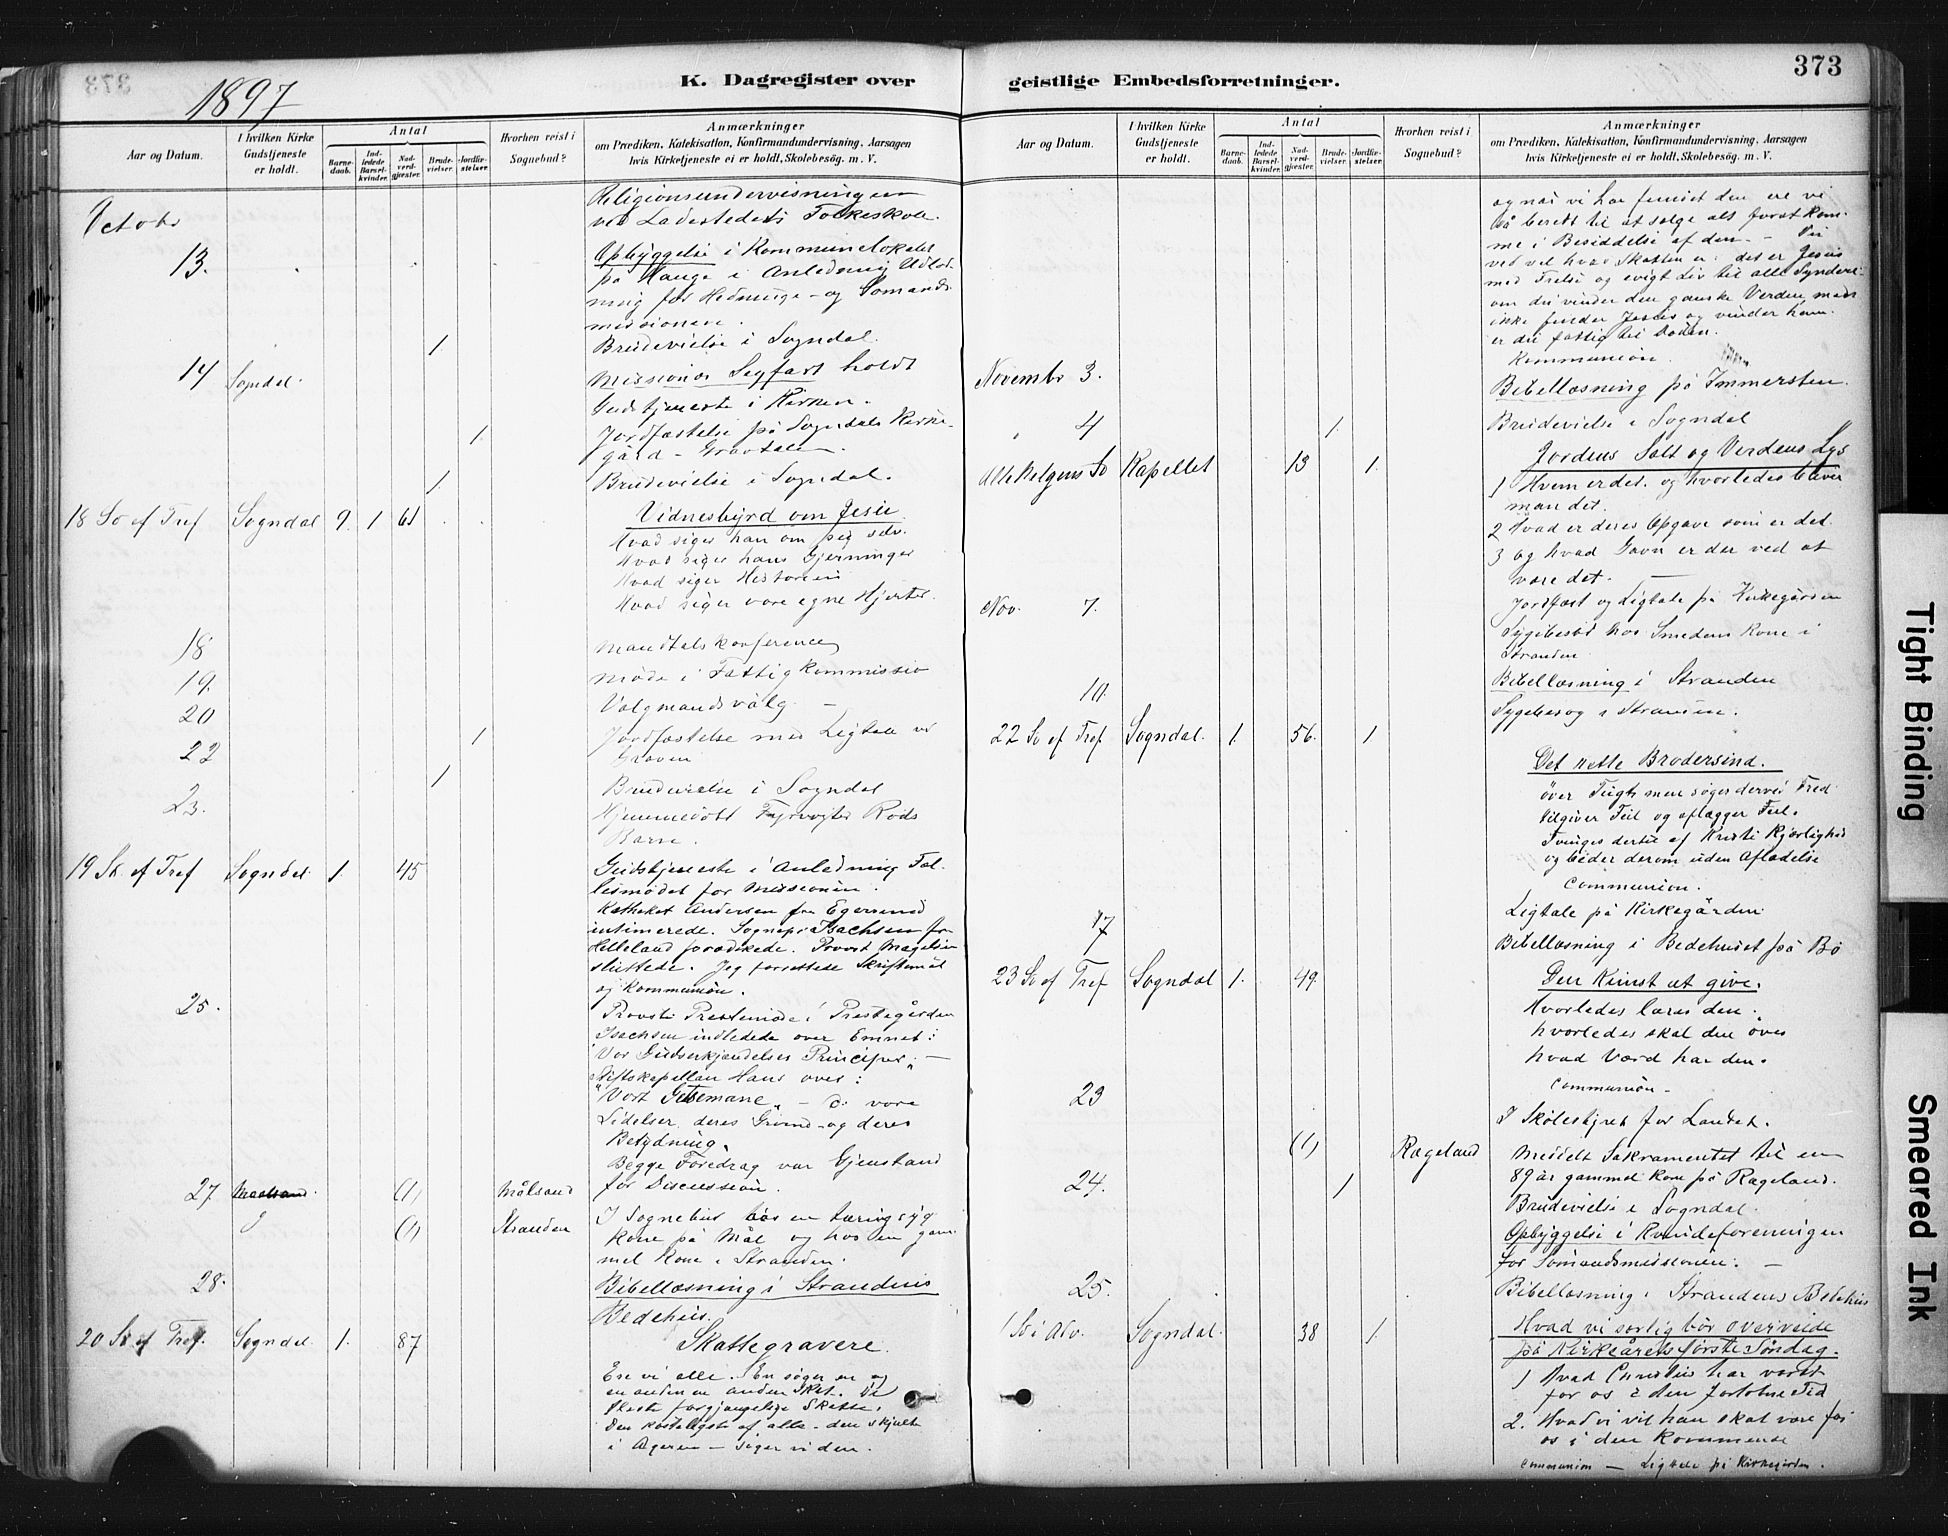 373
1897
K. Dagregister over
geistlige Embedsforretninger.
Aar og Datum.
I hvilken Kirke Gudstjeneste er holdt.
Antal
Barnedaab.
Indledede Barselkvinder.
Nadverdgjester.
Brudevielser.
Jordfæstelser.
Hvorhen reist i Sognebud?
Anmærkninger
om Prædiken, Katekisation, Konfirmandundervisning, Aarsagen
hvis Kirketjeneste ei er holdt, Skolebesøg. m. V.
Octobr
Religionsundervisningen
ved Ladestedets Folkeskole.
13.
Opbyggelse i Kommunelokalet
på Hauge i Anledning Udlod-
ning for Hedninge- og Sømands-
missionen.
1
Brudevielse i Sogndal.
14 Sogndal.
Missionær Segfart holdt
Gudstjeneste i Kirken.
1
Jordfæstelse på Sogndals Kirke-
gård - Gravtale.
1.
Brudevielse i Sogndal.
18 Sø ef Tref Sogndal 9. 1 61
Vidnesbyrd om Jesu
Hvad siger han om sig selv.
Hvad siger hans Gjerninger
Hvad siger Historien
Hvad siger vore egne Hjerter.
18
Mandtalskonference
19.
Møde i Fattigkommissio
20
Valgmandsvalg -
22 1
Jordfæstelse med Ligtale ved
Graven
1
Brudevielse i Sogndal
23.
Hjemmedøbt Fyrvogter Røds
Barn.
19 Sø. ef Tref Sogndal 1. 45
Gudstjeneste i Anledning Fæl-
lesmødet for Missionen.
Katheket Andersen fra Egersund
intimerede. Sognepr Isachsen fra
Helleland forædikede. Provst Magelsen
sluttede. Jeg forrettede Skriftemål
og Kommunion.
25.
Provsti Prestemøde i Prestegården
Isachsen indledede over Emnet:
"Vor Gudserkjendelses Principer" -
Stiftskapellan Hans over:
"Vort Getsemane" - ɔ: vore
Lidelser deres Grund og deres
Betydning.
Begge Foredrag var Gjenstand
for Discussion.
27 Maalsand. (1) Målsand
I Sognebud hos en tæringssyg
(1) Stranden
Kone på Mål og hos en gam-
mel Kone i Stranden.
28.
Bibellæsning i Strandens
Bedehus.
20 Sø ef Tref. Sogndal. 1. 87
Skattegravere.
Ere vi alle. En søger en og
en anden en anden Skat. De
fleste forgjængelige Skatte.
Den kosteligste af alle - den skjulte
i Ageren - søger vi den.
373
Aar og Datum.
I hvilken Kirke Gudstjeneste er holdt.
Antal
Barnedaab.
Indledede Barselkvinder.
Nadverdgjester.
Brudevielser.
Jordfæstelser.
Hvorhen reist i Sognebud?
Anmærkninger
om Prædiken, Katekisation, Konfirmandundervisning, Aarsagen
hvis Kirketjeneste ei er holdt, Skolebesøg. m. V.
og når vi har fundet den ere vi
så beredt til at sælge alt forat kom-
me i Besiddelse af den. - Vi
ved vel hvad Skatten er: det er Jesus
med Frelse og evigt Liv til alle Syndere.
om du vinder den ganske Verden men
ikke finder Jesus og vinder ham
er du fattig til Døden.
Kommunion.
Novembr 3.
Bibellæsning på Immersten.
4 1
Brudevielse i Sogndal
Allehelgens Sø Kapellet 13 1.
Jordens Salt og Verdens Lys
1 Hvem er det. og hvorledes bliver
man det.
2 Hvad er deres Opgave som er det.
3 og hvad Gavn er der ved at
være det.
Nov. 7.
Jordfæst og Ligtale på Kirkegården
Sygebesøg hos Smedens Kone i
Stranden
10.
Bibellæsning i Stranden
Sygebesøg i Stranden.
22 Sø ef Tref Sogndal. 1. 56. 1
Det rette Brodersind.
øver Tugt men søger derved Fred
tilgiver Feil og aflægger Feil.
Tvinges dertil af Kristi Kjærlighed
og beder derom uden Afladelse
Communion.
Ligtale på Kirkegården
17
Bibellæsning i Bedehuset på Bø
23 Sø ef Tref Sogndal 1. 49.
Den Kunst at give.
Hvorledes læres den.
hvorledes skal den øves
hvad Værd har den.
Communion.
23
I Skolestyret for Landet.
(1) Rægeland
Meddelt Sakramentet til en
89 år gammel Kone på Rægeland.
24. 1
Brudevielse i Sogndal.
Opbyggelse i Kvindeforeningen
for Sømandsmissionen.
25.
Bibellæsning i Strandens Bedehus
1 Sø i Adv. Sogndal. 38 1.
Hvad vi særlig bør overveie
på Kirkeårets første Søndag.
1 Hvad Christus har været
for os i den forløbne Tid
2. Hvad vi vil han skal være for
os i den Kommende
Communion - Ligtale på Kirkegården.
Tight Binding
Smeared Ink